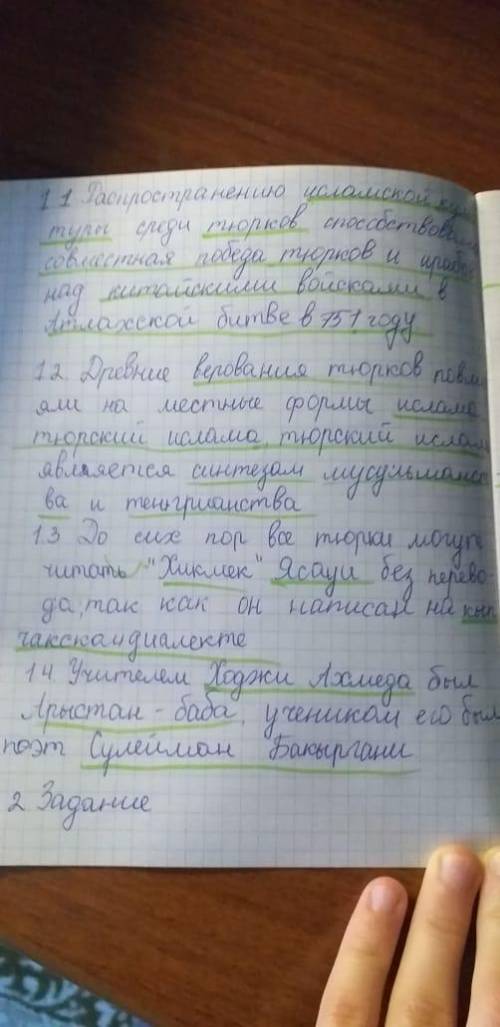 1.1 Распространению исламской куль
туры среди тюрков способствовала
совместная победа тюрков и арабов
над китайскими войсками в
Атлахской битве в 751 году
1.2. Древние верования тюрков повли
яли на местные формы ислама
тюрский ислама, тюрский ислам
является синтезом мусульманст
ва и тенгрианства
1.3 До сих пор все тюрки могут
читать "Хикмек" Ясауи без перево
да, так как он написан на кып
чакскам диалекте
1.4 Учителем Ходжи Ахмеда был
Арыстан-баба, учеником его был
поэт Сулейман Бакыргани
2 Задание